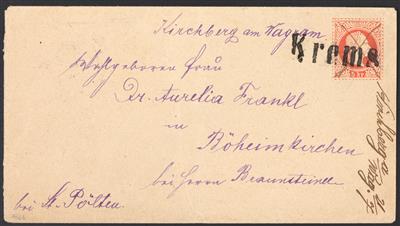 Kirchberg am Wagram
Krems
5 kr
Wohlgeboren Frau
Dr. Aurelia Frankl
in
Böheimkirchen
bei Herrn Braunsteiner
bei St. Pölten